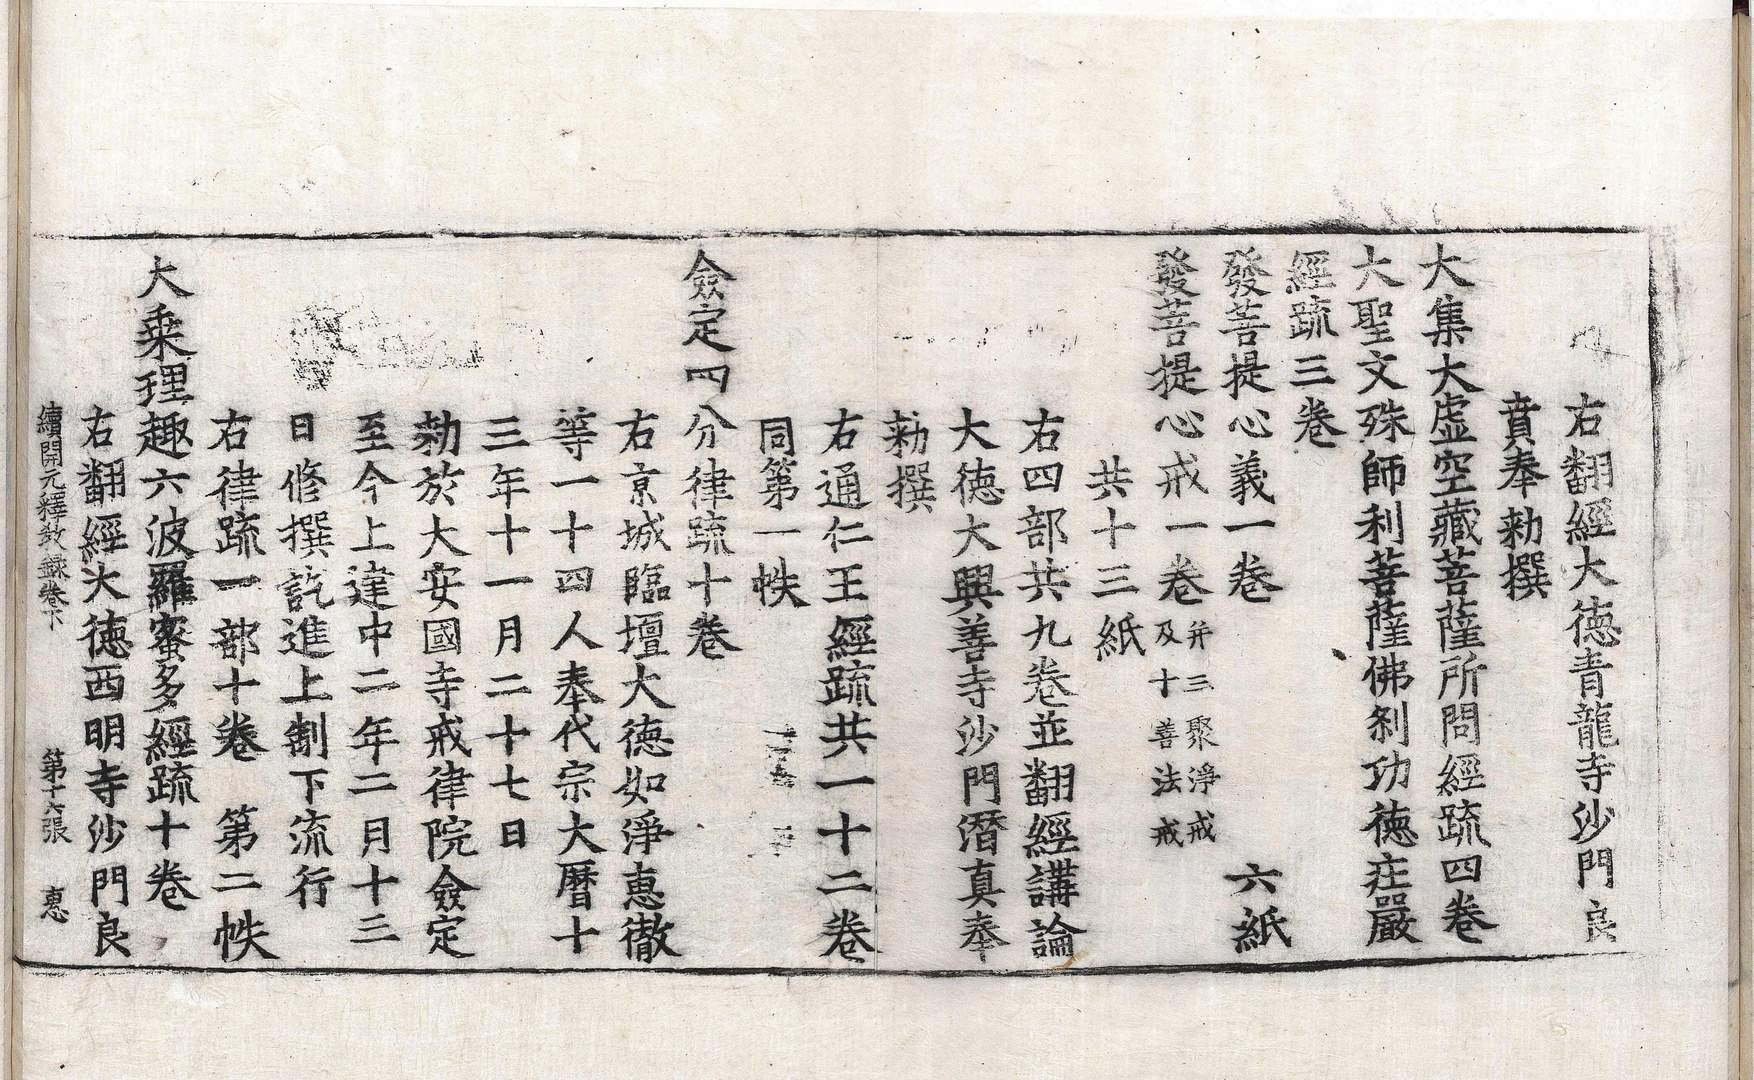 右翻經大德青龍寺沙門良
賁奉勑撰
大集大虛空藏菩薩所問經疏四卷
大聖文殊師利菩薩佛刹功德庄嚴
經疏三卷
發菩提心義一卷 六紙
發菩提心戒一卷 并三聚淨戒
及十善法戒
共十三紙
右四部共九卷並翻經講論
大德大興善寺沙門潛真奉
勑撰
右通仁王經疏共一十二卷
同第一帙
僉定四分律疏十卷
右京城臨壇大德如淨惠徹
等一十四人奉代宗大曆十
三年十一月二十七日
勑於大安國寺戒律院僉定
至今上建中二年二月十三
日修撰訖進上制下流行
右律疏一部十卷 第二帙
大乘理趣六波羅蜜多經疏十卷
右翻經大德西明寺沙門良
續開元釋敎錄卷下 第十六張 惠